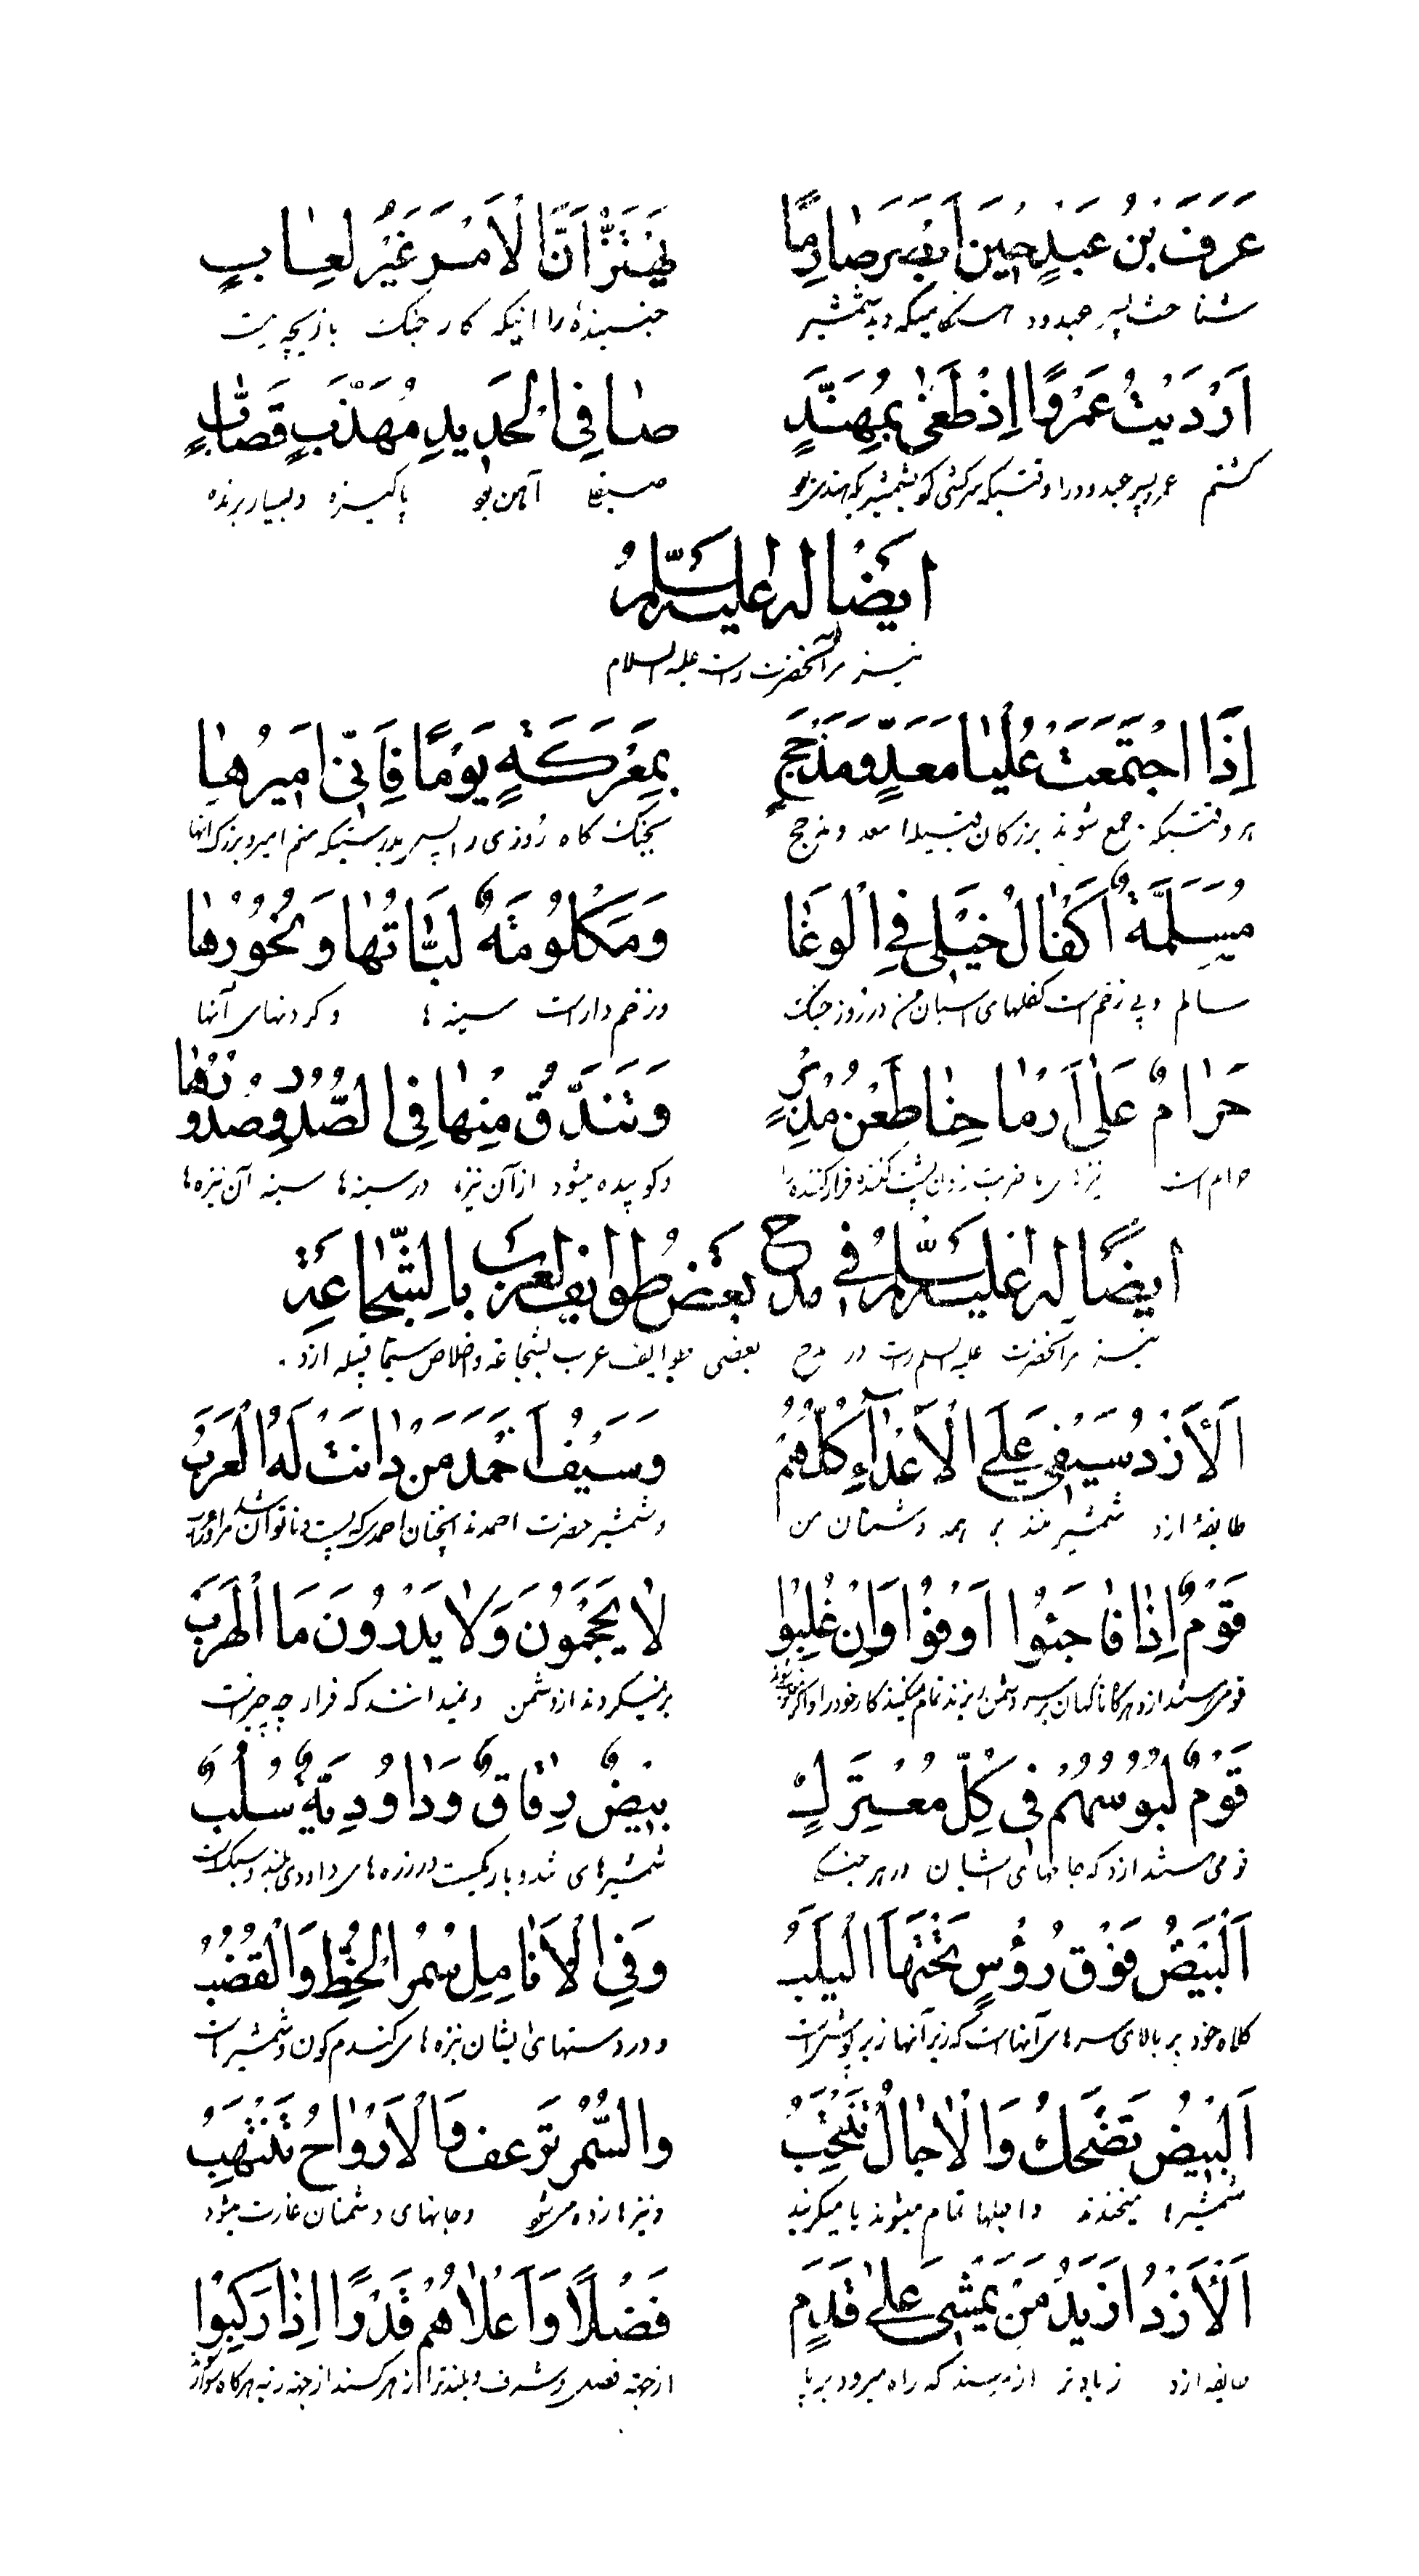 عَرَفَ بْنُ عَبْدٍ حِينَ اَبْصَرَ صٰارِمًا يَهْتَزُّ اَنَّ الْاَمْرَ غَيْرُ لِعٰابٍ
شناخت پسر عبدود هنگامیکه دید شمشیر جنبنده را اینکه کار جنگ بازیچه نیست
اَرْدَيْتُ عَمْرًوا اِذْ طَغٰى بِمُهَنَّدٍ صٰافِى الْحَدِيدِ مُهَذَّبٍ قَصّٰابٍ
کشتم عمرو پسر عبدود را وقتیکه سرکشی کرد بشمشیریکه هندی بود آهن بود پاکیزه و بسیار برنده
ايضًا له عليه السّلام
نیز مر آنحضرت راست علیه السلام
اِذَا اجْتَمَعَتْ عُلْيٰا مَعَدٍّ وَمَذْحَجٍ بِمَعْرَكَةٍ يَوْمًا فَاِنّى اَمِيرُهٰا
هر وقتیکه جمع شوند بزرگان قبیله معد و مذحج بجنگ گاه روزی پس بدرستیکه منم امیر و بزرگ آنها
مُسَلَّمَةٌ اَكْفٰالُ خَيْلِى فِى الْوَغٰا وَمَكْلُومَةٌ لَبّٰاتُهٰا وَنُحُورُهٰا
سالم و بی زخم است کفلهای اسبان من در روز جنگ و زخم دار است سینه ها و گردنهای آنها
حَرٰامٌ عَلٰى اَرْمٰاحِنٰا طَعْنُ مُدْبِرٍ وَتَنْدَقُّ مِنْهٰا فِى الصُّدُورِ صُدُورُهٰا
حرام است نیزهای ما ضربت زدن پشت کننده فرار کننده را و کوبیده میشود از آن نیزه در سینه ها سینه آن نیزه ها
ايضًا له عليه السّلام فى مدح بعض طوائف العرب بالشّجاعة
نیز مر آنحضرت علیه السلم راست در مدح بعضی طوایف عرب بشجاعة و اخلاص سیما قبیله ازد.
اَلْاَزْدُ سَيْفِى عَلَى الْاَعْدٰآءِ كُلِّهُمُ وَسَيْفُ اَحْمَدَ مَنْ دٰانَتْ لَهُ الْعَرَبُ
طایفهٔ ازد شمشیر منند بر همه دشمنان من و شمشیر حضرت احمدند آنچنان احمدی که
قَوْمٌ اِذٰا فٰاجَئُوا اَوْفَوْا وَاِنْ غُلِبُوا لٰا يَحْجُمُونَ وَلٰا يَدْرُونَ مَا الْهَرَبُ
قومی هستند ازد هرگاه ناگهان بر سر دشمن بریزند تمام میکنند کار خود را و اگر برنمیگردند از دشمن و نمیدانند که فرار چه چیز است
قَوْمٌ لَبُوسُهُمُ فِى كُلِّ مُعْتَرَكٍ بِيضٌ رِقٰاقٌ وَدٰاوُدِيَّةٌ سُلُبٌ
قومی هستند ازد که جامهای ایشان در هر جنگ شمشیرهای تند و باریکست و زره های داودی بلند و سبک است
اَلْبَيْضُ فَوْقَ رُؤُسٍ تَحْتَهَا الْيَلَبُ وَفِى الْاَنٰامِلِ سُمْرُ الْخَطِّ وَالْقُضُبُ
کلاه خود بر بالای سرهای آنها است که زیر آنها زیرپوشهاست و در دستهای ایشان نیزه های گندم گون و شمشیر است
اَلْبِيضُ تَضْحَكُ وَالْاٰجٰالُ تَنْتَحِبُ وَالسُّمْرُ تَرْعَفُ وَالْاَرْوٰاحُ تَنْتَهِبُ
شمشیرها میخندند و اجلها تمام میشوند یا میگریند و نیزها زده میشود و جانهای دشمنان غارت میشود
اَلْاَزْدُ اَزْيَدُ مَنْ يَمْشِى عَلٰى قَدَمٍ فَضْلًا وَاَعْلٰاهُمْ قَدْرًا اِذٰا رَكِبُوا
طایفه ازد زیادتر از همه‌اند که راه میرود بر پا از جهة فضل و شرف و بلندتر از هر کسند از جهة رتبه هرگاه سوار